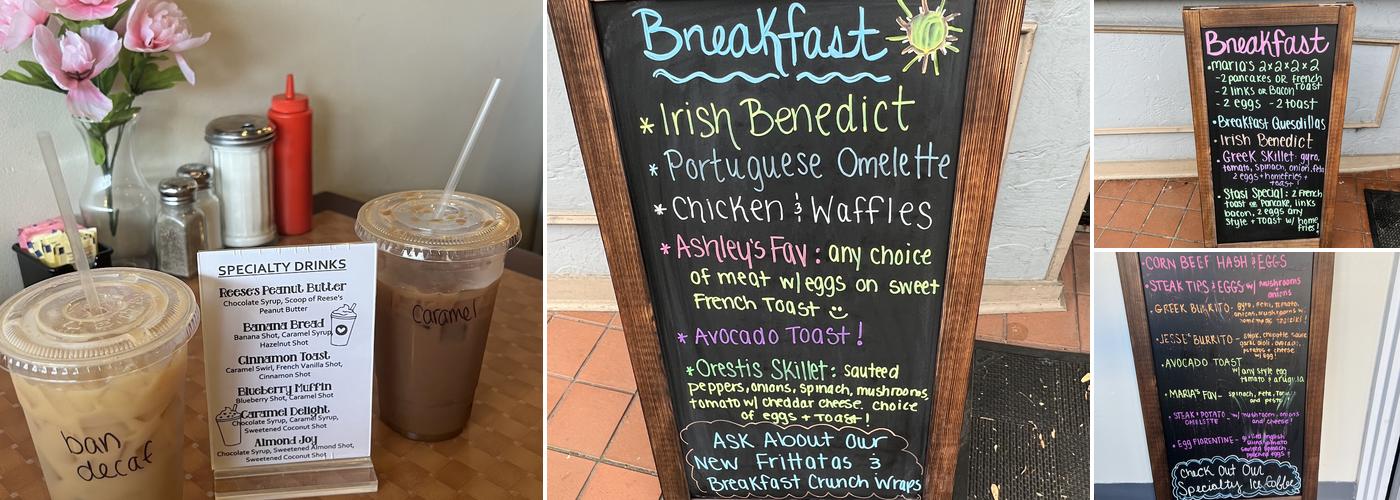 ban
decaf
Caramel
SPECIALTY DRINKS
Reese's Peanut Butter
Chocolate Syrup, Scoop of Reese's
Peanut Butter
Banana Bread
Banana Shot, Caramel Syrup,
Hazelnut Shot
Cinnamon Toast
Caramel Swirl, French Vanilla Shot,
Cinnamon Shot
Blueberry Muffin
Blueberry Shot, Caramel Shot
Caramel Delight
Chocolate Syrup, Caramel Syrup,
Sweetened Coconut Shot
Almond Joy
Chocolate Syrup, Sweetened Almond Shot,
Sweetened Coconut Shot
Breakfast
* Irish Benedict
* Portuguese Omelette
* Chicken & Waffles
* Ashley's Fav: any choice
of meat w/ eggs on sweet
French Toast
* Avocado Toast!
* Orestis Skillet: sauteed
peppers, onions, spinach, mushrooms,
tomato w/ cheddar cheese. choice
of eggs + toast!
ASK About our
New Frittatas &
Breakfast Crunch Wraps
Breakfast
• maria's 2x2x2x2
- 2 pancakes OR French Toast
- 2 links OR Bacon
- 2 eggs - 2 toast
• Breakfast Quesdillas
• Irish Benedict
• Greek Skillet: gyro,
tomato, spinach, onion, feta
2 eggs + homefries +
toast!
• Stasi Special: 2 French
toast or Pancake, links
bacon, 2 eggs any
style + toast w/ home
fries!
• CORN BEEF HASH & EGGS
• STEAK TIPS & EGGS w/ mushrooms
+ onions
• GREEK BURRITO - gyro, feta, tomato,
onions, mushrooms w/
homemade tzatziki!
• JESSE'S BURRITO - steak, chipotle sauce
garlic aioli, avocado,
potatoes + cheese
w/ egg!
• AVOCADO TOAST
w/ any style egg
tomato & arugula
• MARIA'S FAV - spinach, feta, Tom
and pesto
• STEAK + POTATO - w/ mushroom, onions
OMELETTE and cheese!
• Egg FlORENTINE - grilled english
tomato
sauteed spinach
poached eggs!
Check Out Our
Specialty Ice Coffee